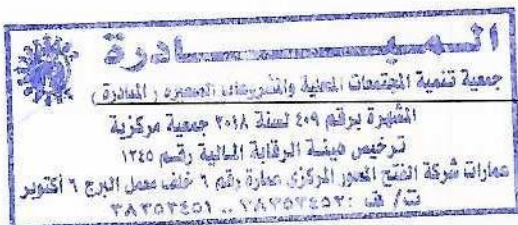 المبادرة
جمعية تنمية المجتمعات المحلية والمشروعات الصغيرة ( المبادرة )
المشهرة برقم ٤٠٩ لسنة ٢٠١٨ جمعية مركزية
ترخيص هيئة الرقابة المالية رقم ١٢٤٥
عمارات شركة الفتح المحور المركزى عمارة رقم ٦ خلف معمل البرج ٦ أكتوبر
ت/ ف : ٣٨٣٥٢٤٥٢ .. ٣٨٣٥٢٤٥١